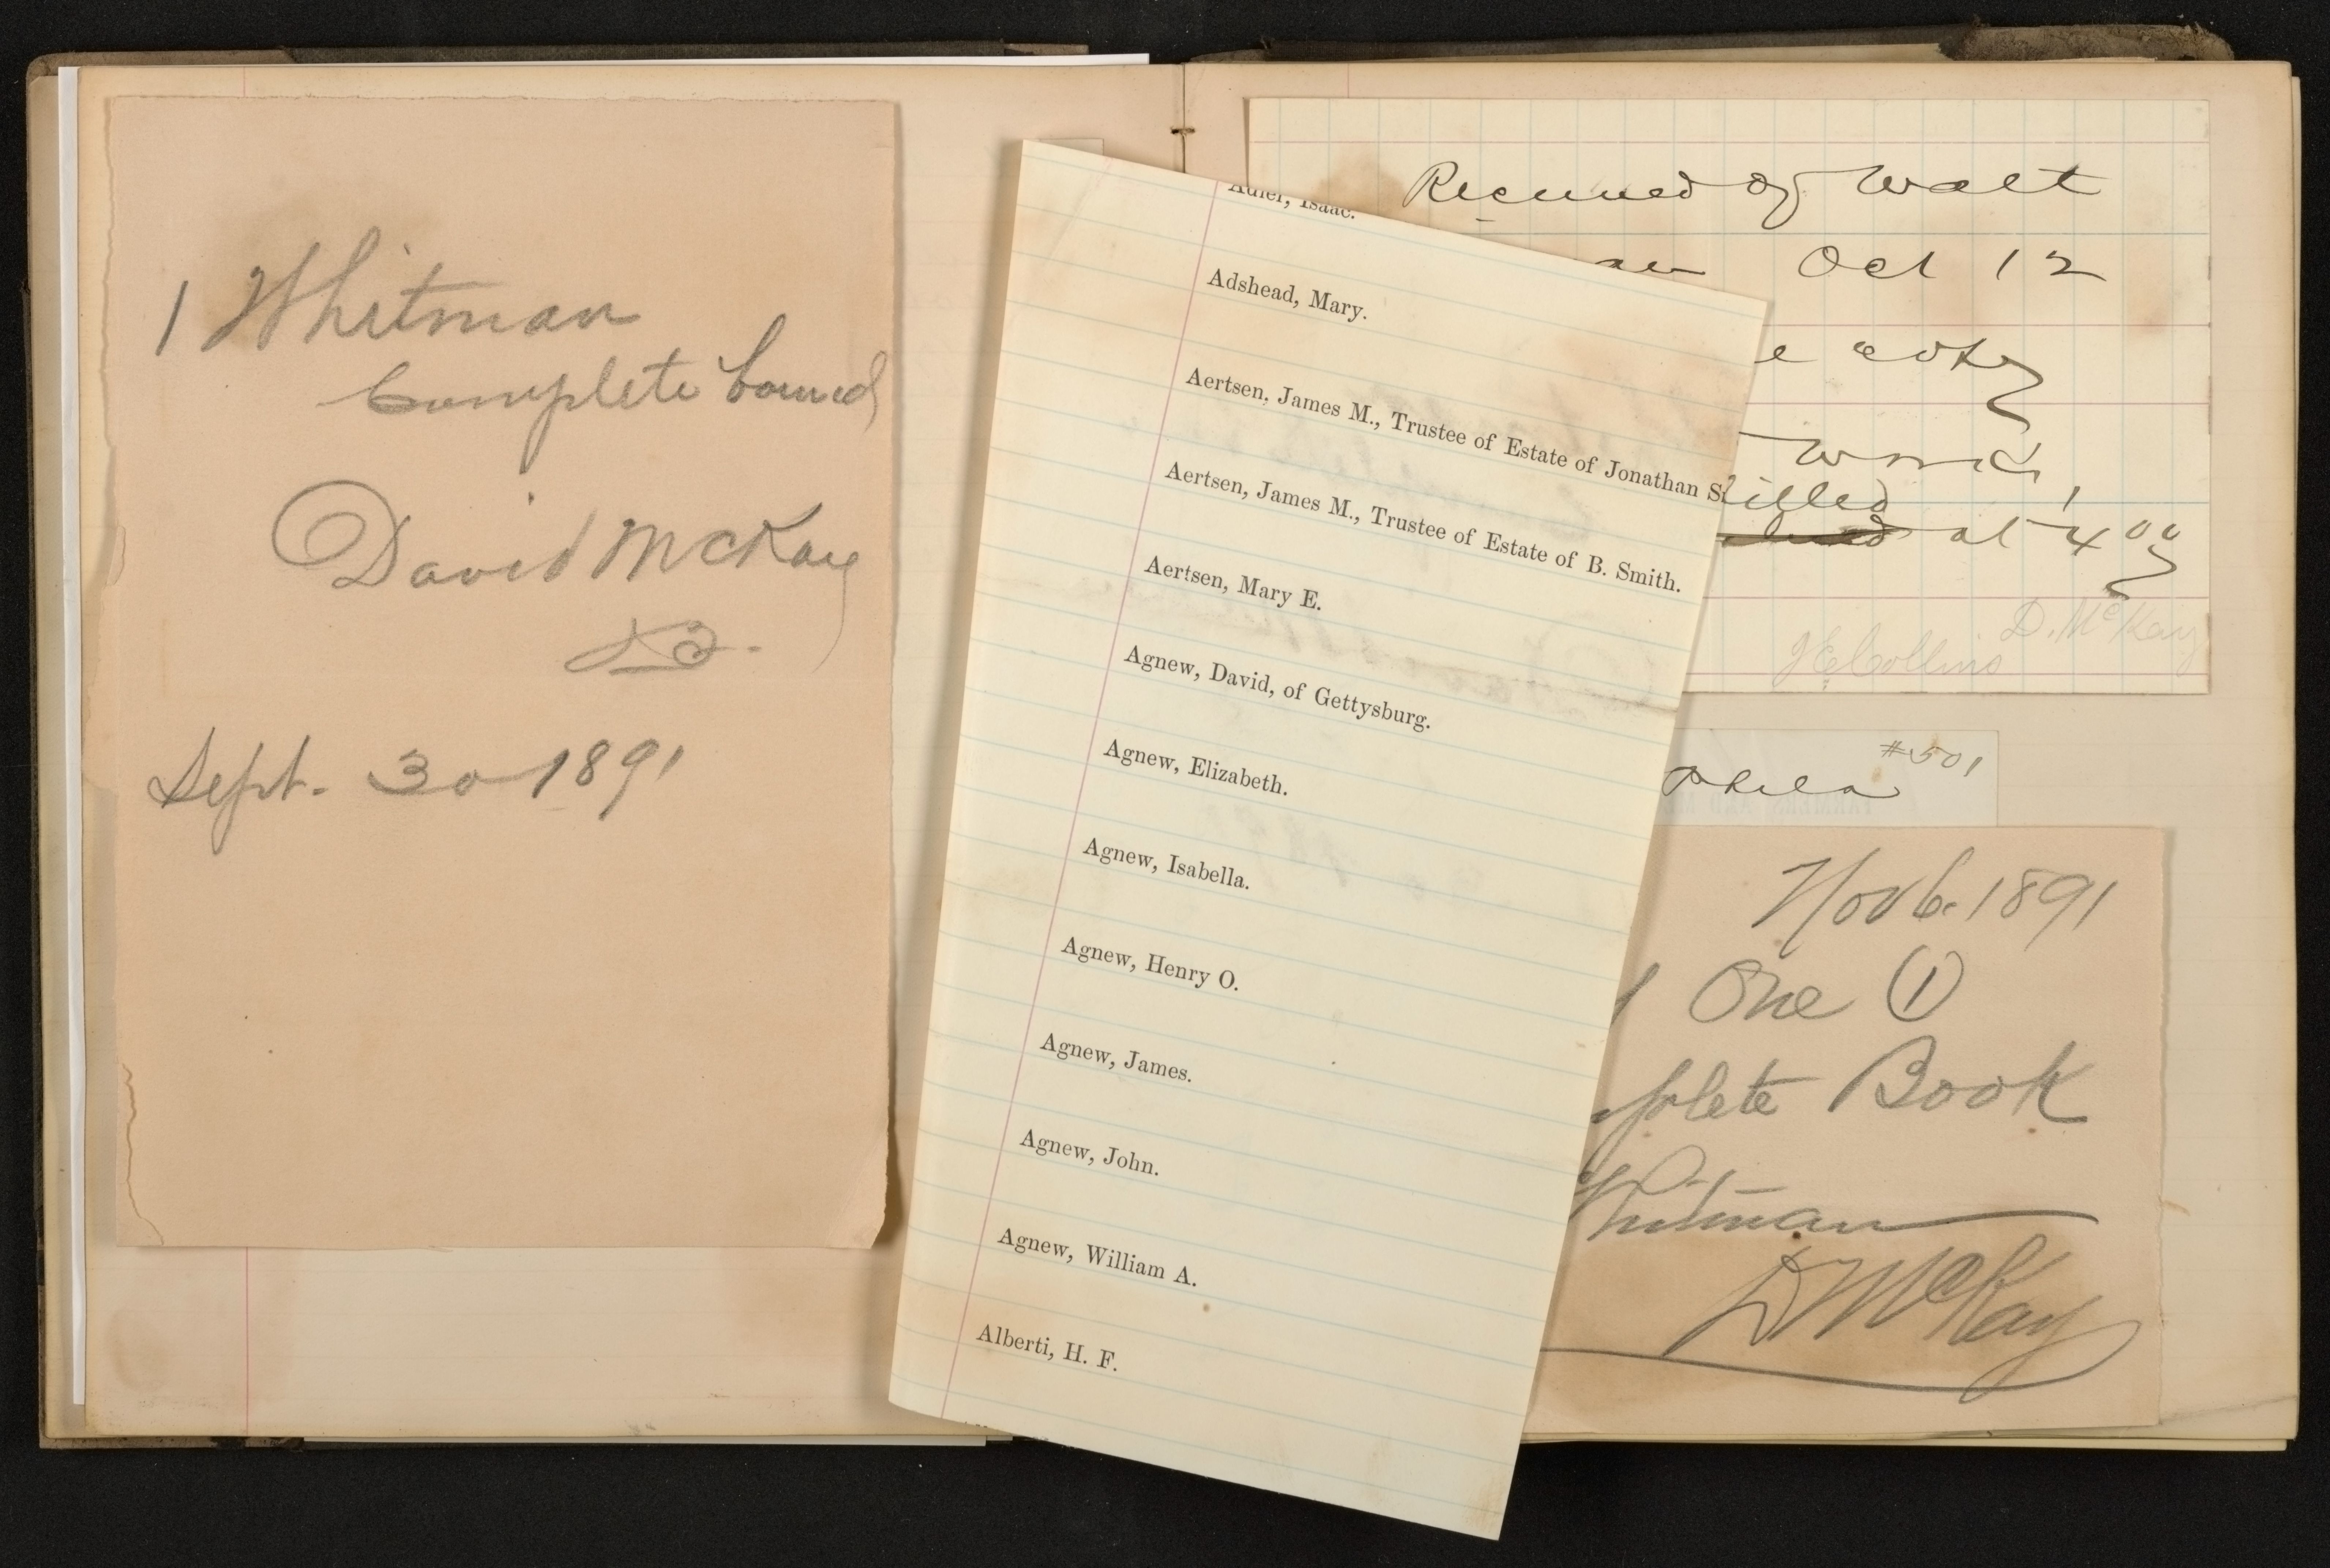 1 Whitman
Complete bound
David McKay
Sept. 30 1891
Adler, Isaac.
Adshead, Mary.
Aertsen, James M., Trustee of Estate of Jonathan
Aertsen, James M., Trustee of Estate of B. Smith.
Aertsen, Mary E.
Agnew, David, of Gettysburg.
Agnew, Elizabeth.
Agnew, Isabella.
Agnew, Henry O.
Agnew, James.
Agnew, John.
Agnew, William A.
Alberti, H. F.
Received of Walt
Oct 12
copy
works,
billed
at 4 00
D. McKay
J E Collins
#501
Phila
Nov 6. 1891
One (1)
plete Book
Whitman
D McKay